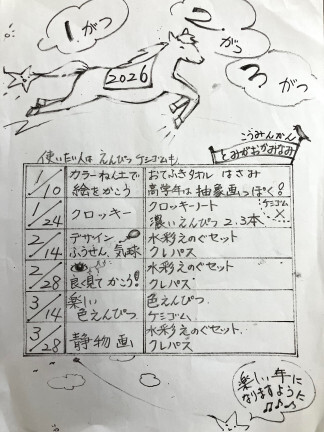 1.がつ
2.がつ
3がつ
2026
こうみんかん
とみがおかみなみ
使いたい人は えんぴつ ケシゴムも.
1/10 カラーねん土で 絵をかこう おてふきタオル はさみ 高学年は抽象画っぽく!
1/24 クロッキー クロッキーノート 濃いえんぴつ 2.3本 ケシゴム ×
2/14 デザイン ふうせん、気球 水彩えのぐセット クレパス
2/28 良く見てかこう! 水彩えのぐセット クレパス
3/14 楽しい 色えんぴつ 色えんぴつ. ケシゴム
3/28 静物画 水彩えのぐセット. クレパス
楽しい年に
なりますように
♪♪〜